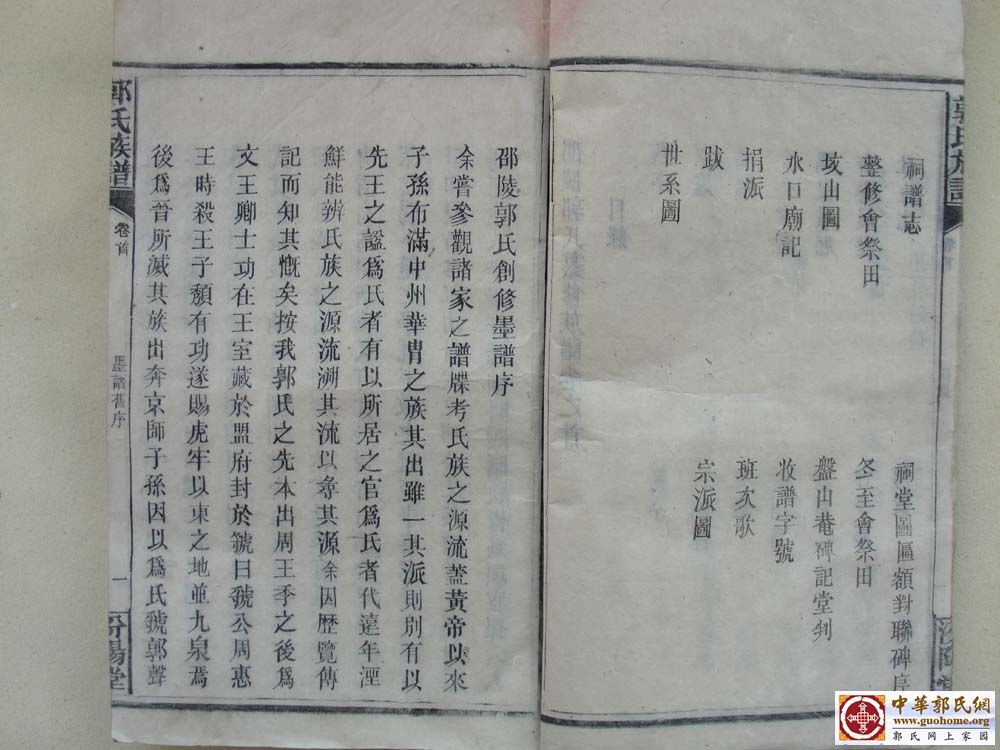 祠譜志
祠堂圖匾額對聯碑序
整修會祭田
冬至會祭田
坟山圖
盤山菴碑記堂判
水口廟記
收譜字號
捐派
班次歌
跋
宗派圖
世系圖
邵陵郭氏創修墨譜序
余嘗參觀諸家之譜牒考氏族之源流蓋黃帝以來
子孫布滿中州華冑之族其出雖一其派則別有以
先王之諡爲氏者有以所居之官爲氏者代遠年湮
鮮能辨氏族之源流溯其流以尋其源余因歷覽傳
記而知其慨矣按我郭氏之先本出周王季之後爲
文王卿士功在王室藏於盟府封於虢曰虢公周惠
王時殺王子頹有功遂賜虎牢以東之地並九泉焉
後爲晉所滅其族出奔京師子孫因以爲氏虢郭聲
郭氏族譜
卷首
墨譜舊序
一
汾陽堂
郭氏族譜
中華郭氏網
www.guohome.org
郭氏網上家園